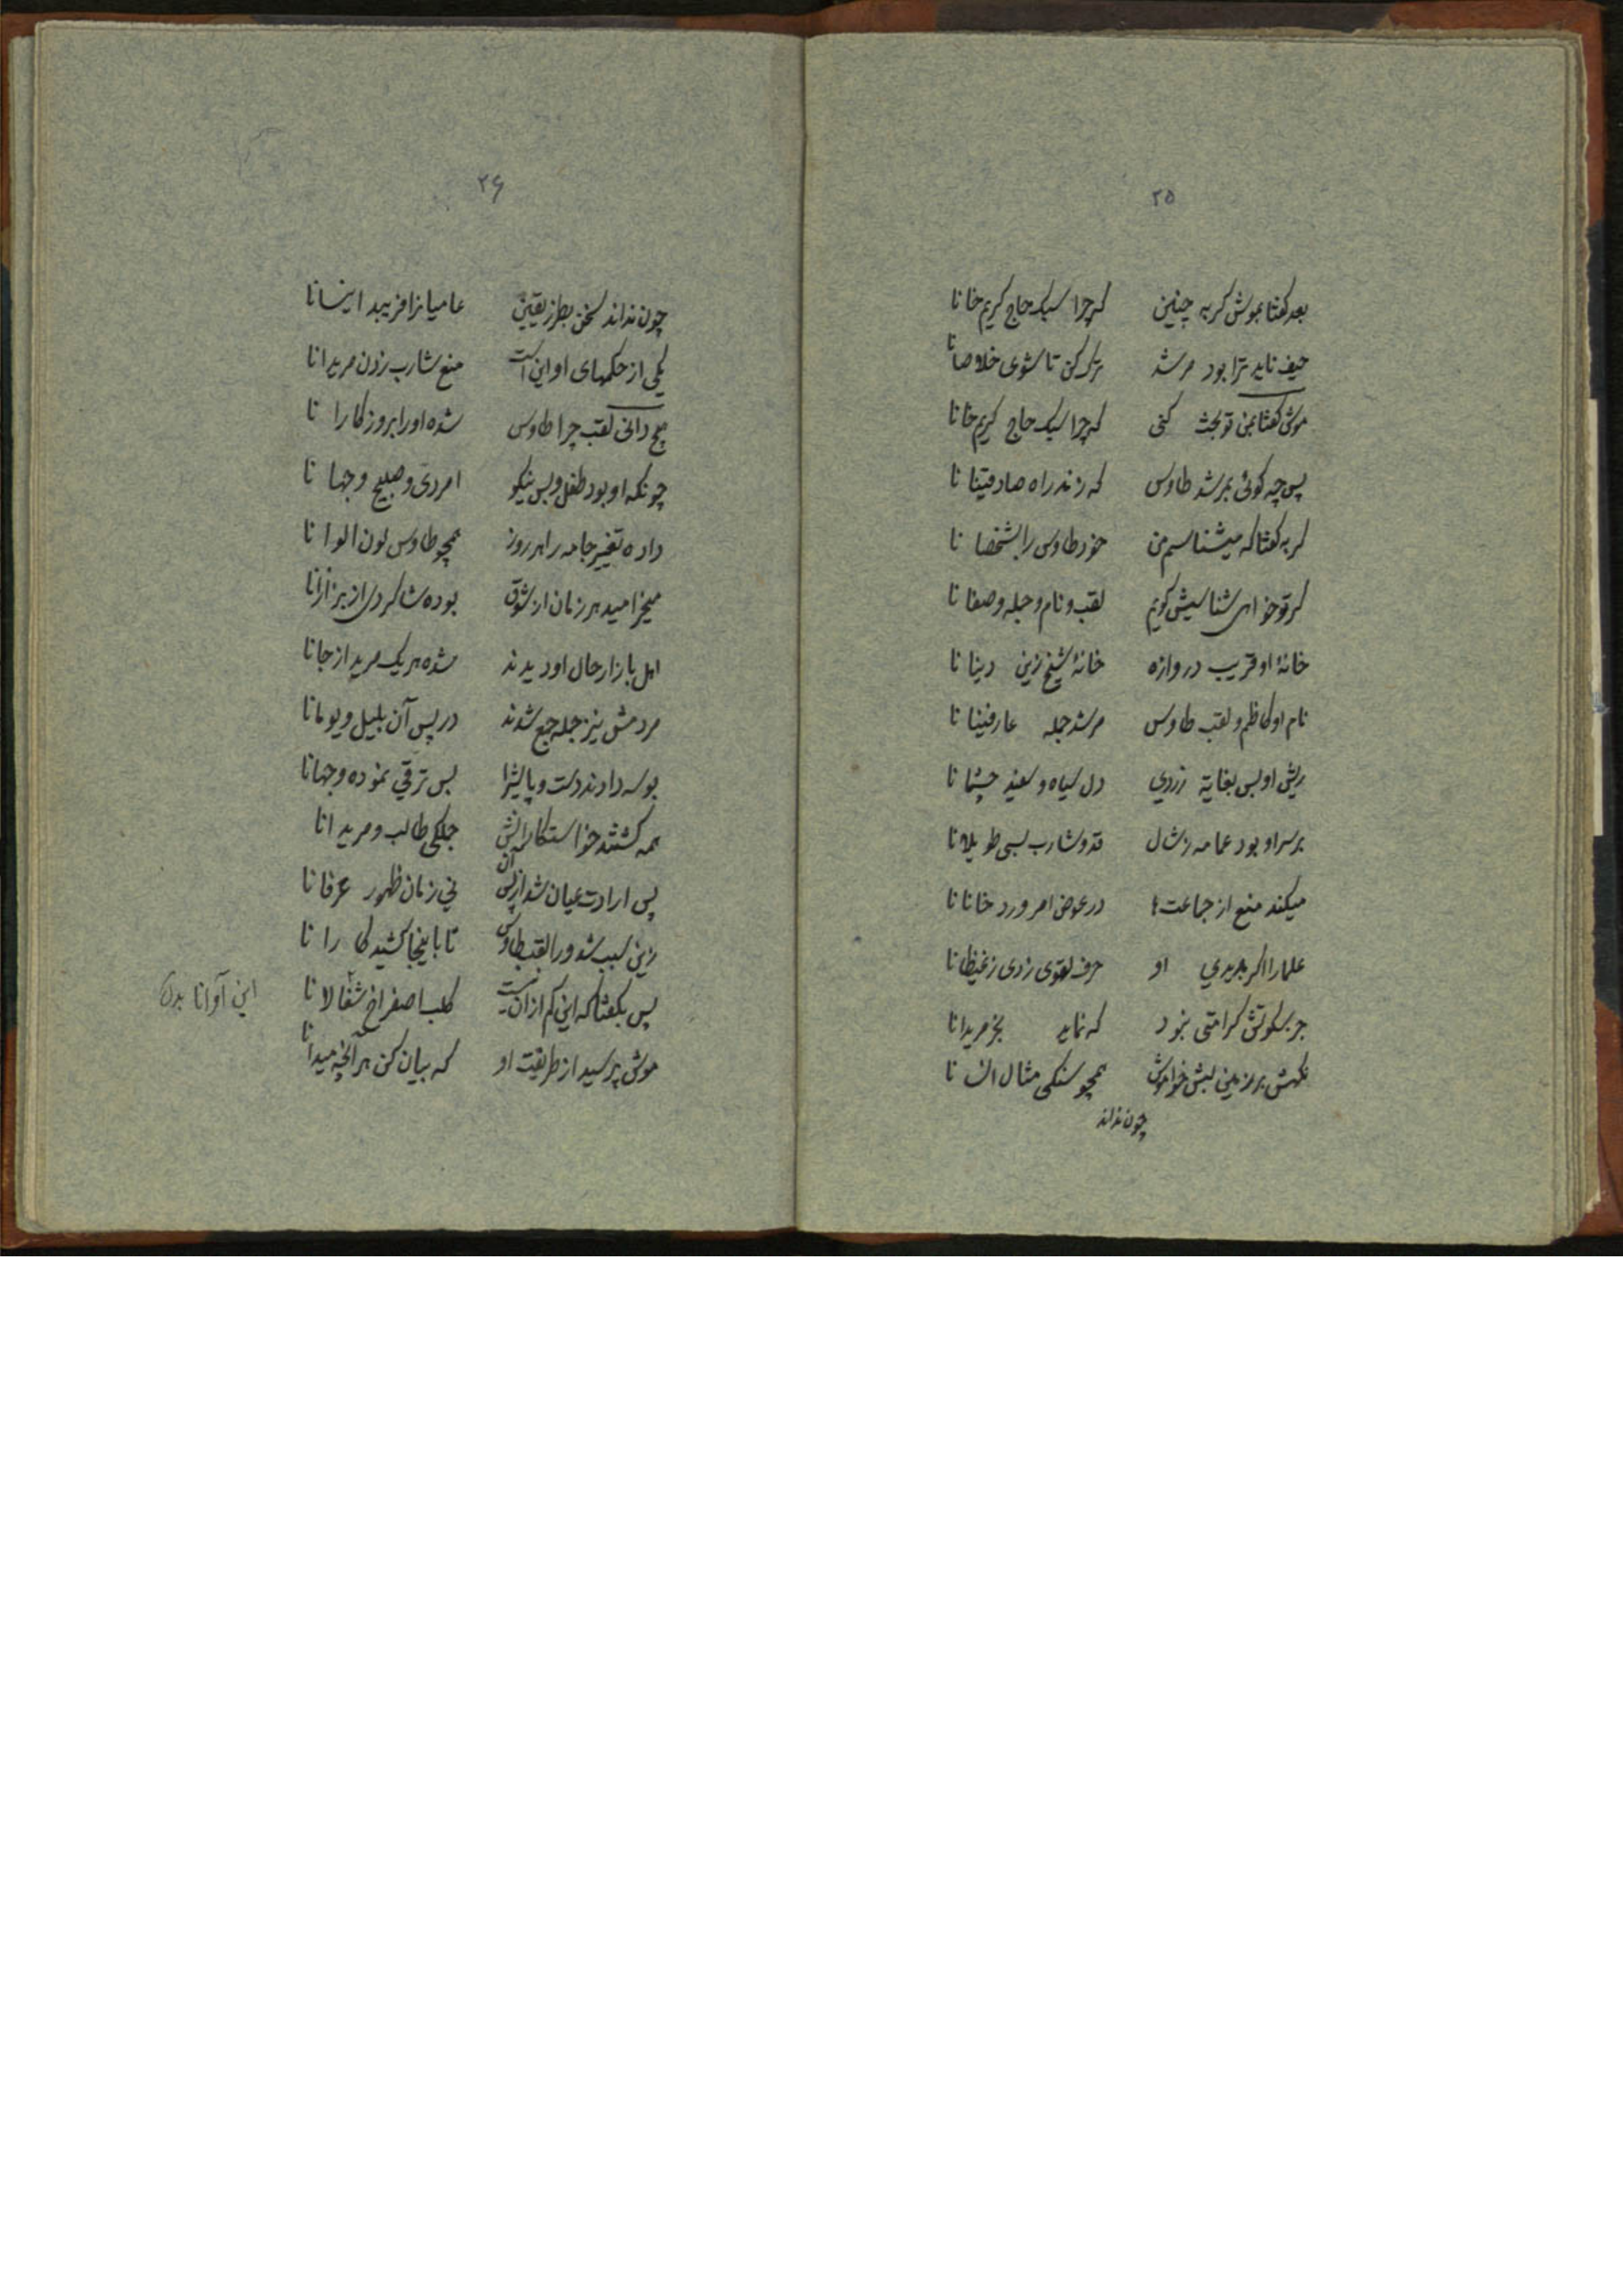 ۲۵
بعد گفتا بموش گربه چنین که چرا سبک حاج کریم خانا
حیف ناید ترا بود مرشد ترک کن تا شوی خلاصانا
موش گفتا بمن تو بحث کنی که چرا سبک حاج کریم خانا
پس چه گوئی بمرشد طاوس که زند راه صادقینانا
گربه گفتا که میشناسم من خود طاوس را بشخصانا
گر تو خواهی شناسیش گویم لقب و نام و حیله وصفانا
خانهٔ او قریب دروازه خانهٔ شیخ زین دینانا
نام او کاظم و لقب طاوس مرشد جمله عارفینانا
ریش او بس بغایة زردی دل سیاه و سفید چشمانا
بر سر او بود عمامه ز شال قد و شارب بسی طویلانا
میکند منع از جماعت‌ها در عوض امر ورد خانانا
علما را اگر بدیدی او حرف لغوی زدی ز غیظانا
جز سکوتش کرامتی نبود که نماید بخر مریدانا
نگهش بر زمین لبش خاموش همچو سنگی مثال انسانا
چون نداند
۲۶
چون نداند سخن بطرز یقین عامیانرا فریبد اینسانا
یکی از حکمهای او این است منع شارب زدن مریدانا
هیچ دانی لقب چرا طاوس شده او را بروزگارانا
چونکه او بود طفل و بس نیکو امردی و صبیح وجهانا
داده تغییر جامه را هر روز همچو طاوس لون الوانا
میخرامید هر زمان از شوق بوده شاگردی از بزازانا
اهل بازار حال او دیدند شده هر یک مرید از جانا
مردمش نیز جمله جمع شدند در پس آن بلیل و یومانا
بوسه دادند دست و پایش را بس ترقی نموده وجهانا
همه گشتند خواستکارانش جملگی طالب و مریدانا
پس ارادت عیان شد از پس آن نی زمان ظهور عرفانا
زین سبب شد ورا لقب طاوس تا باینجا کشید کارانا
پس بگفتا که این کم از آن نیست کلب اصفر اخ شغالانا
این آوانا بدل
موش پرسید از طریقت او که بیان کن هر آنچه میدانا